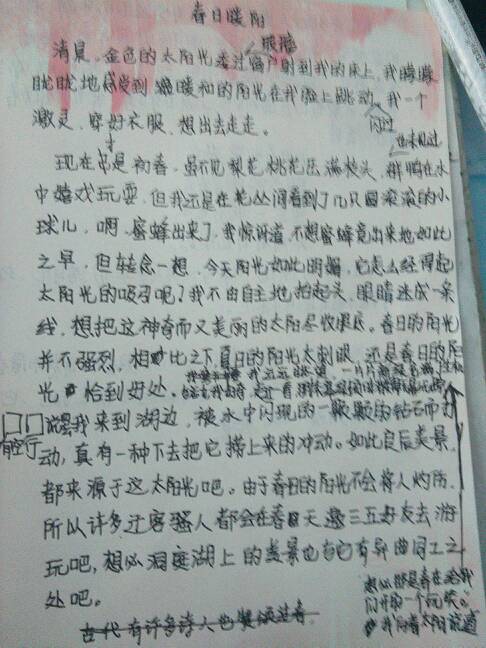 春日暖阳
眼睛
清晨,金色的太阳光透过窗户射到我的床上,我朦朦
胧胧地感觉到 暖和的阳光在我脸上跳动。我一个
激灵,穿好衣服,想出去走走。
现在 是初春,虽不见梨花桃花压满枝头,
群鸭在水
中嬉戏玩耍,但我还是在花丛间看到了几只圆滚滚的小
球儿,啊,蜜蜂出来了,我惊讶道,不想蜜蜂竟出来地如此
之早,但转念一想,今天阳光如此明媚,它怎么经得起
太阳光的吸召呢?我不由自主地抬起头,眼睛迷成一条
线,想把这神奇而又美丽的太阳尽收眼底。春日的阳光
并不强烈,相比之下夏日的阳光太刺眼,还是春日的阳
光 恰到好处。
我来到湖边,被水中闪现的一颗颗的钻石而打
动,真有一种下去把它捞上来的冲动。如此良辰美景,
都来源于这太阳光吧。由于春日的阳光不会将人灼伤,
所以许多迁客骚人都会在春天邀三五好友去游
玩吧,想必洞庭湖上的美景也有它有异曲同工之
处吧。
想必那是春在给我
们开的一个玩笑。
我向着太阳说道
古代有许多诗人也